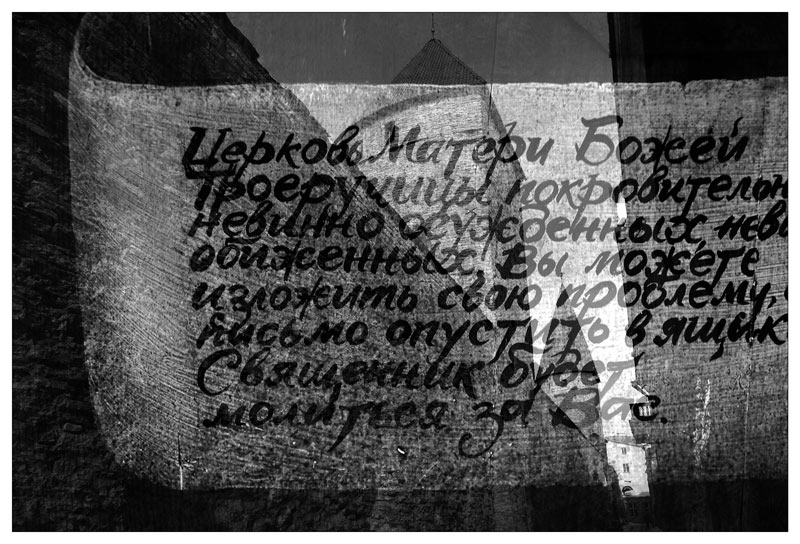 Церковь Матери Божей
Троеручицы покровительн
невинно осужденных неви
обиженных. Вы можете
изложить свою проблему,
письмо опустить в ящик
Священник будет
молиться за Вас.